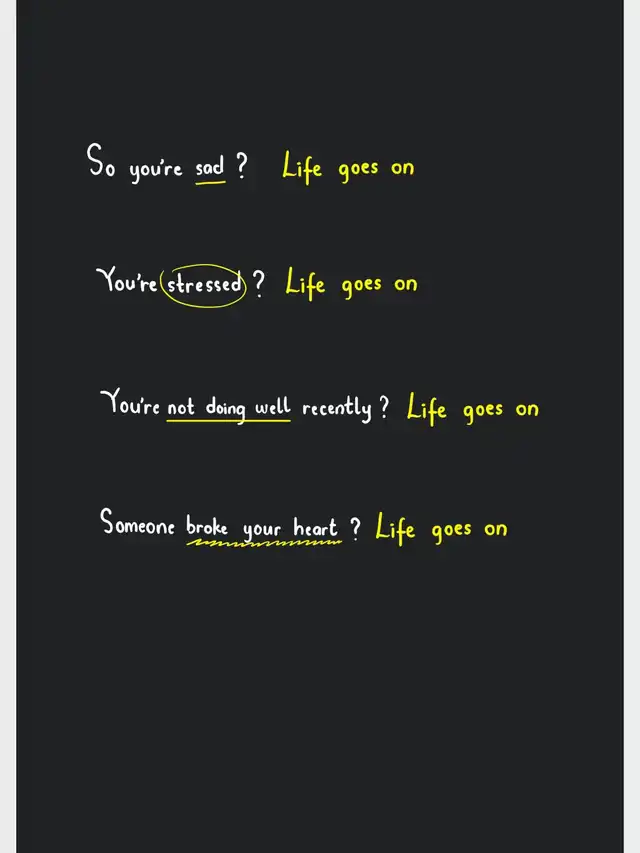 So you're sad? Life goes on
You're stressed? Life goes on
You're not doing well recently? Life goes on
Someone broke your heart? Life goes on